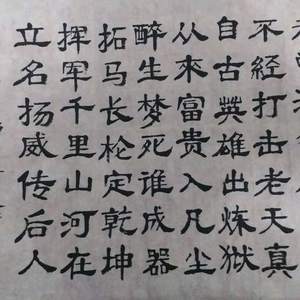 不經打击老天真
自古英雄出炼狱
从來富贵入凡尘
醉生梦死谁成器
拓马长枪定乾坤
挥军千里山河在
立名扬威传后人